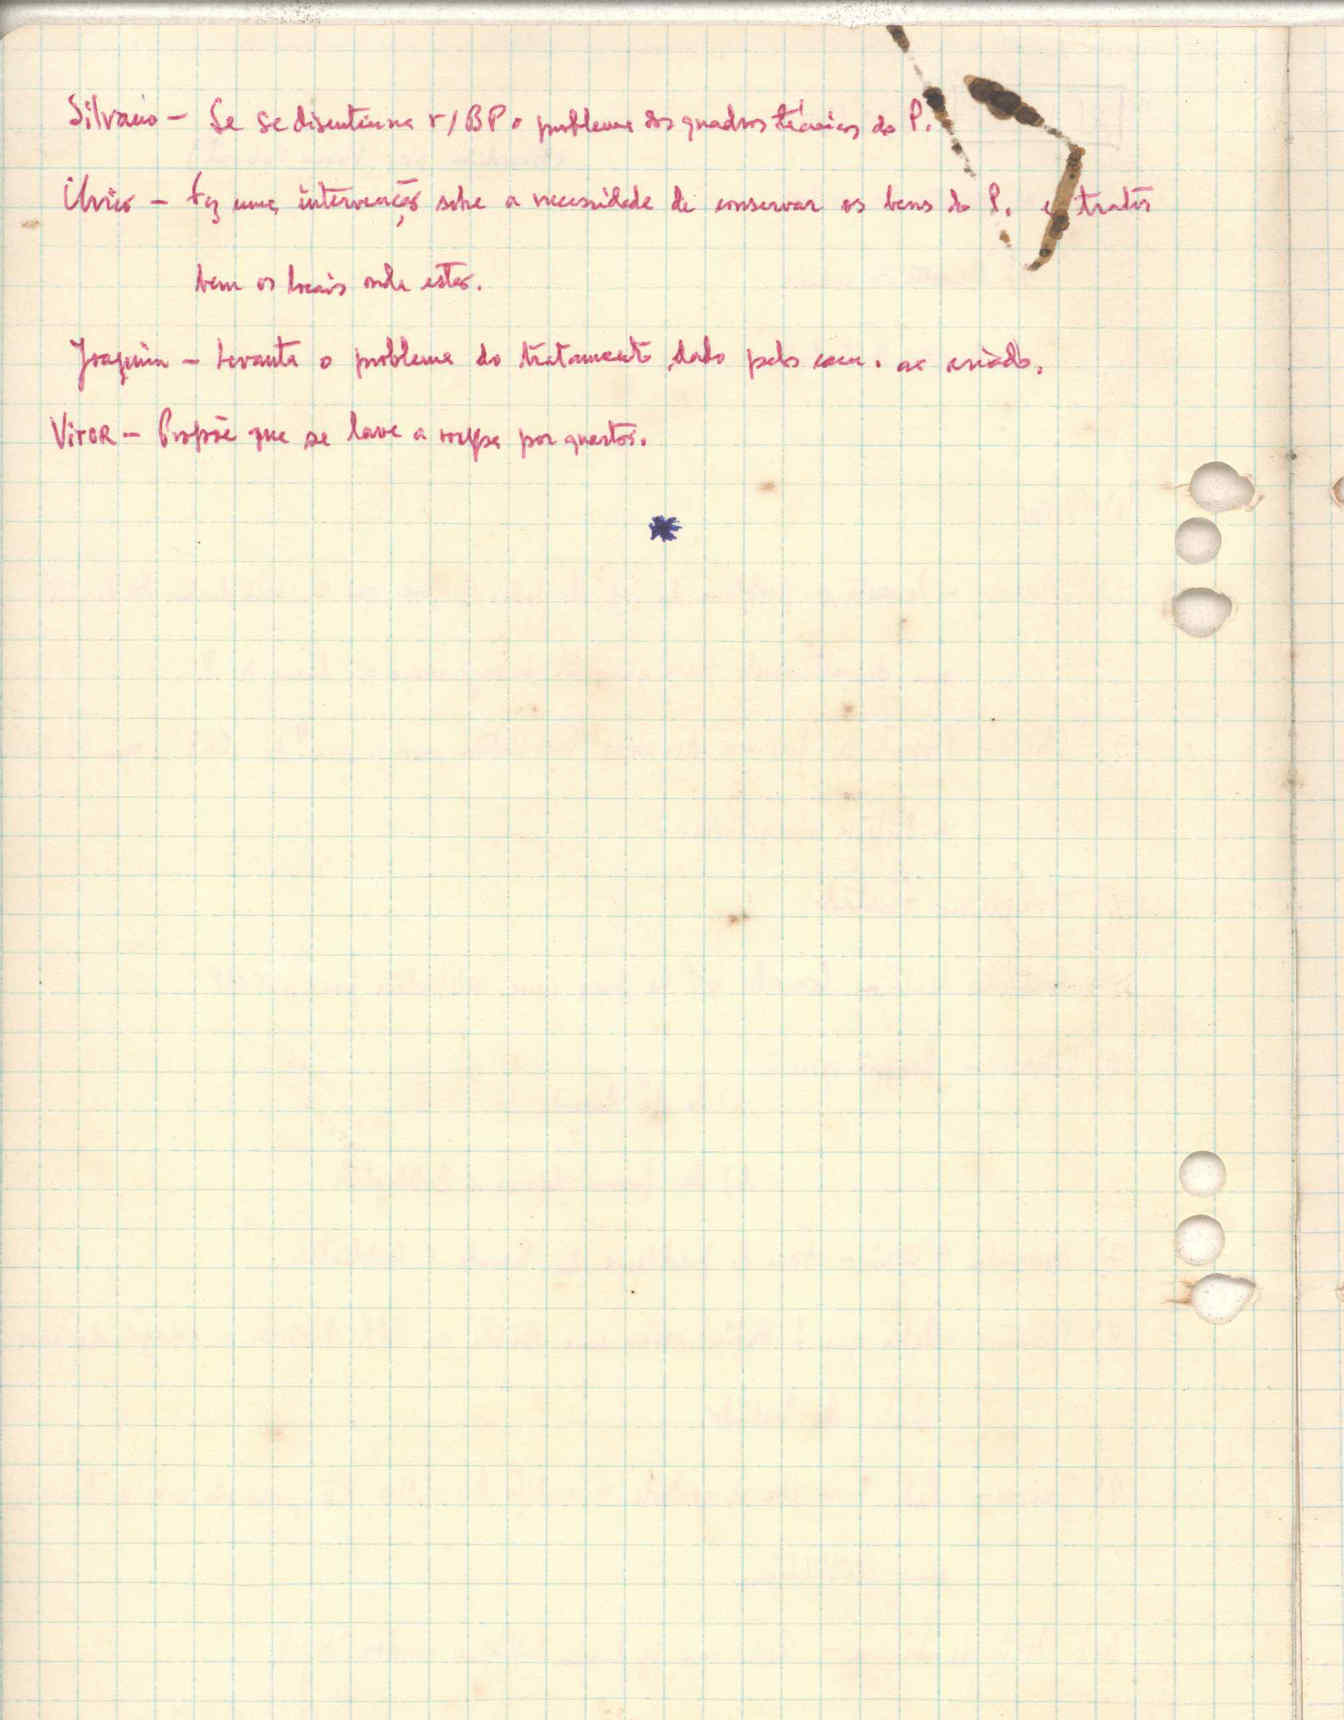 Silvano – Se se discutiu na r/BP o problema dos quadros técnicos do P.
Ilvio – Fez uma intervenção sobre a necessidade de conservar os bens do P. e tratar
bem os locais onde estão.
Joaquim – Levanta o problema do tratamento dado pelos cam. ao criado.
Vitor – Propõe que se lave a roupa por quartos.